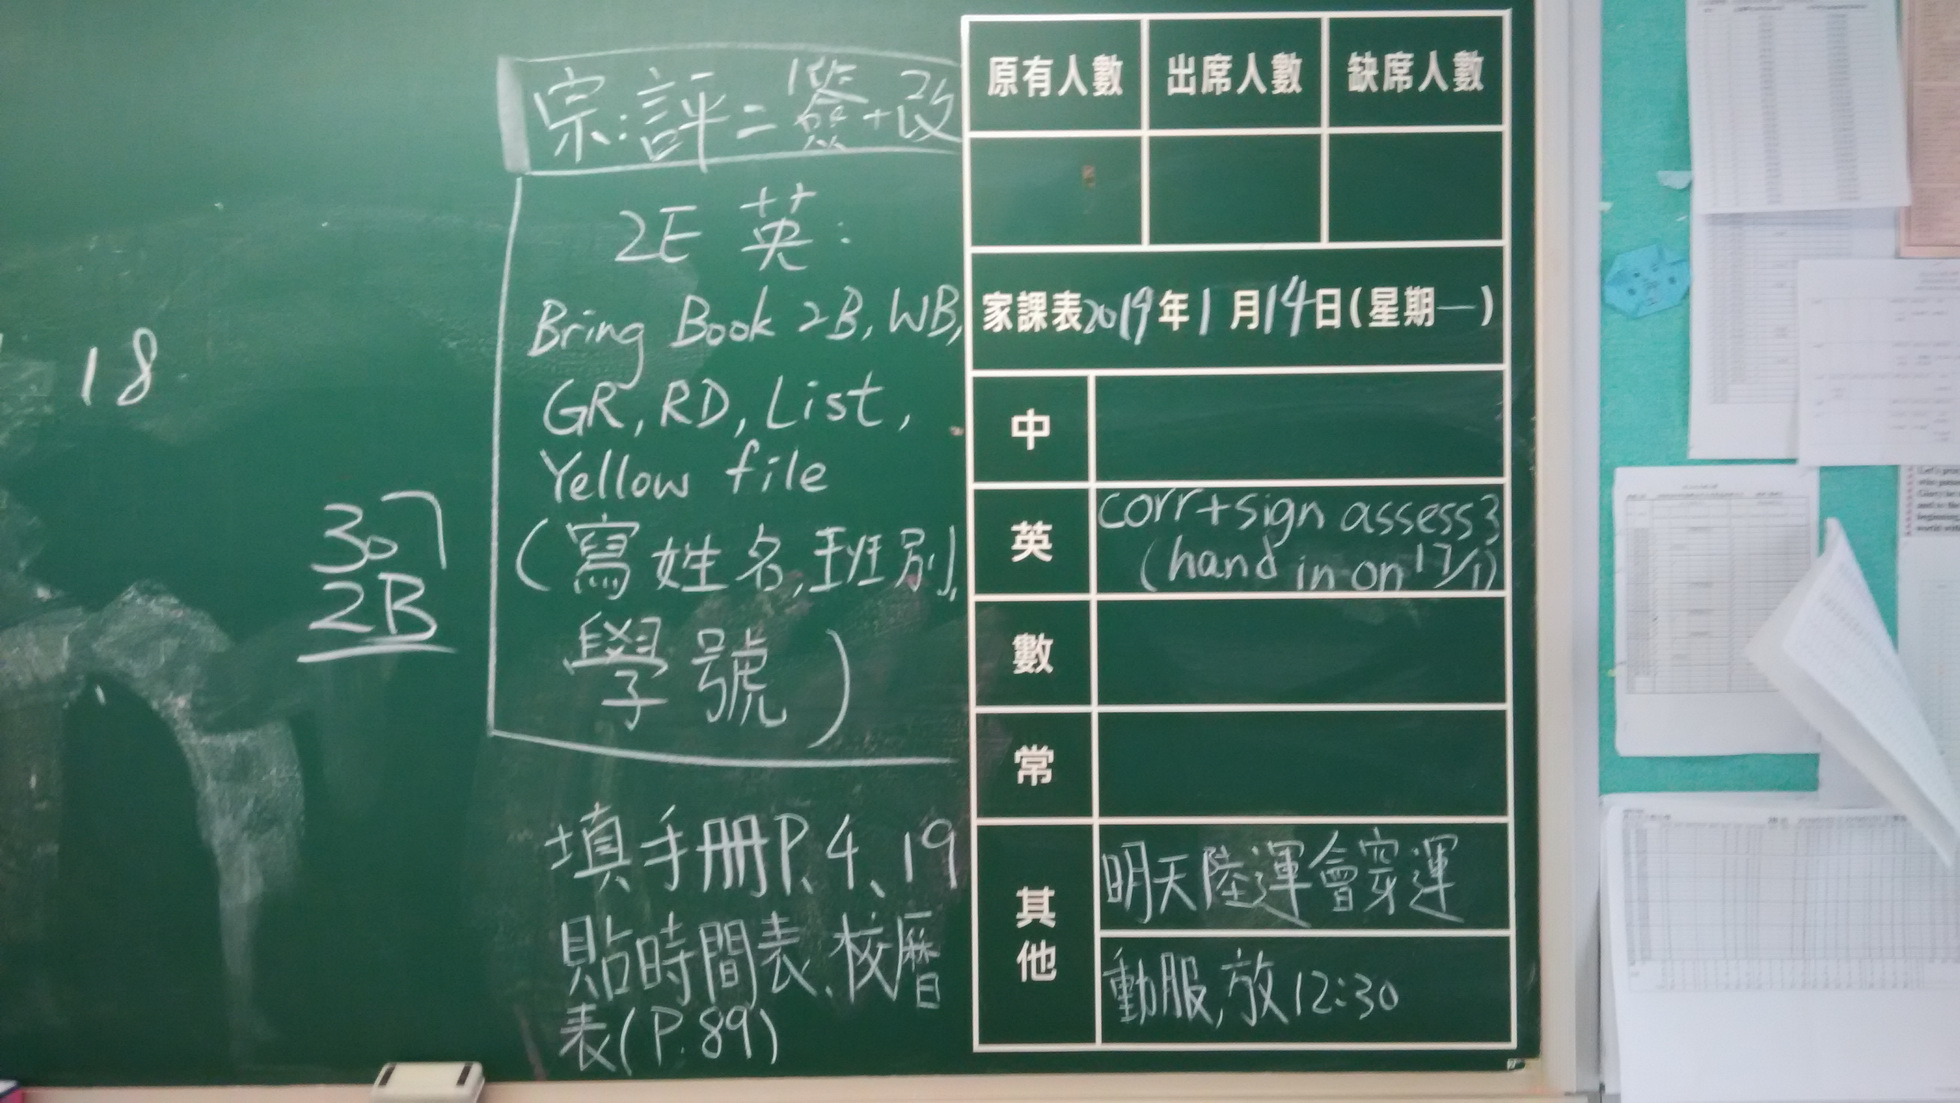 18
307
2B
宗:評二簽+改
2E 英:
Bring Book 2B, WB,
GR, RD, List,
Yellow file
(寫姓名,班別,
學號)
填手冊P.4、19
貼時間表、校曆
表(P.89)
原有人數 出席人數 缺席人數
家課表2019年1月14日(星期一)
中
英 corr+sign assess3
(hand in on 17/1)
數
常
其他 明天陸運會穿運
動服,放12:30